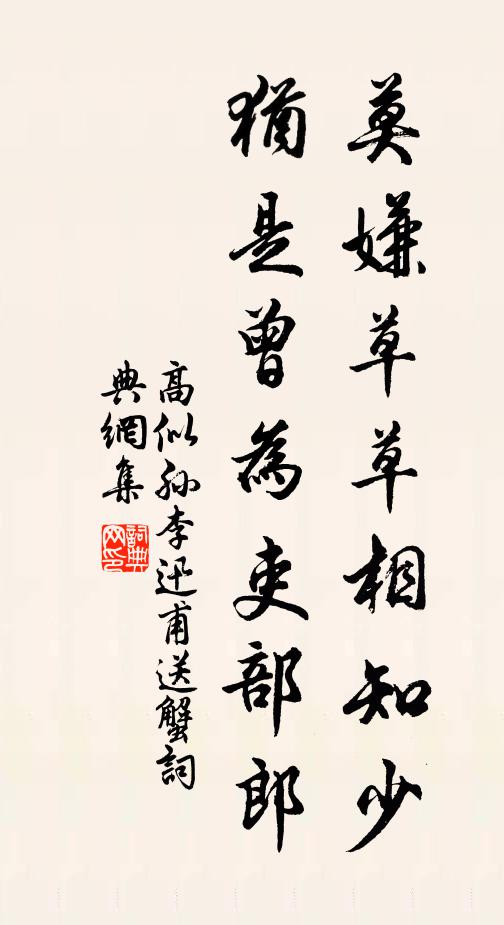 莫嫌草草相知少
猶是曾為吏部郎
高似孫李迅甫送蟹詞
典網集
詞典
网印